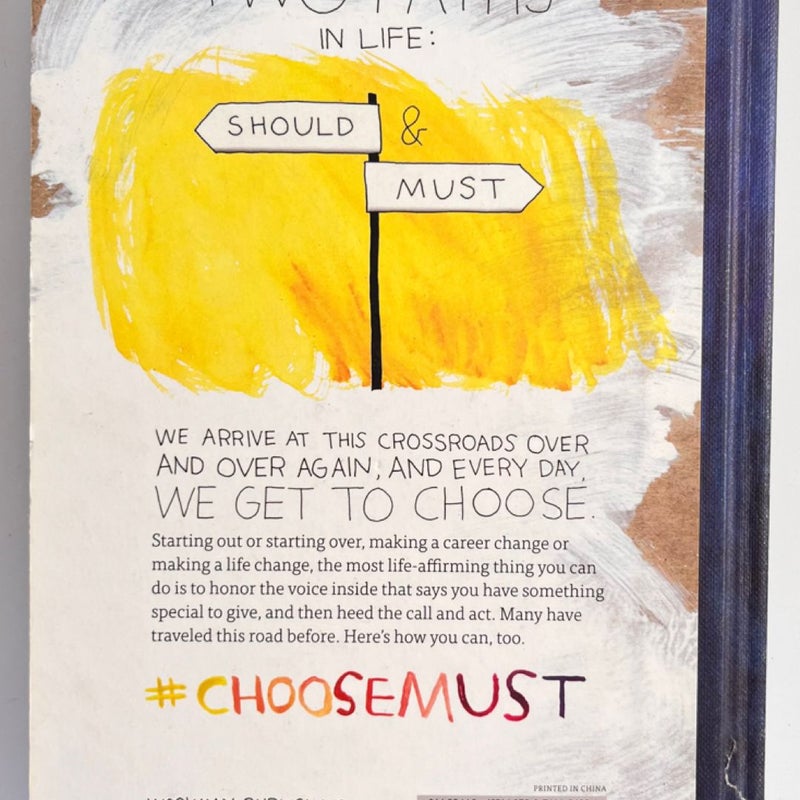 TWO PATHS
IN LIFE:
SHOULD &
MUST
WE ARRIVE AT THIS CROSSROADS OVER
AND OVER AGAIN, AND EVERY DAY,
WE GET TO CHOOSE.
Starting out or starting over, making a career change or
making a life change, the most life-affirming thing you can
do is to honor the voice inside that says you have something
special to give, and then heed the call and act. Many have
traveled this road before. Here's how you can, too.
#CHOOSEMUST
PRINTED IN CHINA